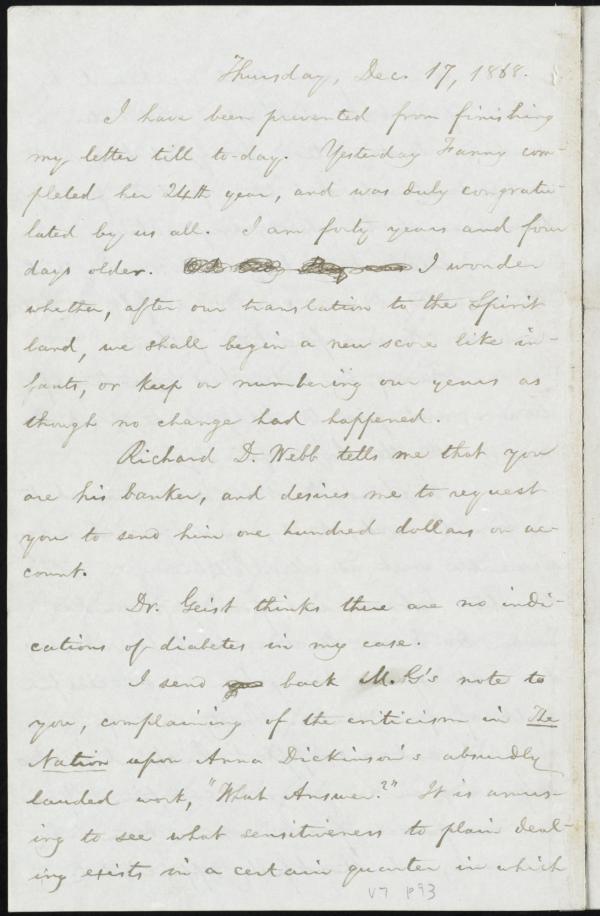 Thursday, Dec. 17, 1868.
I have been prevented from finishing
my letter till to-day. Yesterday Fanny com-
pleted her 24th year, and was duly congratu-
lated by us all. I am forty years and four
days older. I wonder
whether, after our translation to the Spirit
land, we shall begin a new score like in-
fants, or keep on numbering our years as
though no change had happened.
Richard D. Webb tells me that you
are his banker, and desires me to request
you to send him one hundred dollars on ac-
count.
Dr. Geist thinks there are no indi-
cations of diabetes in my case.
I send back M. G's note to
you, complaining of the criticism in The
Nation upon Anna Dickinson's absurdly
lauded work, "What Answer?" It is amus-
ing to see what sensitiveness to plain deal-
ing exists in a certain quarter in which
v7 p93